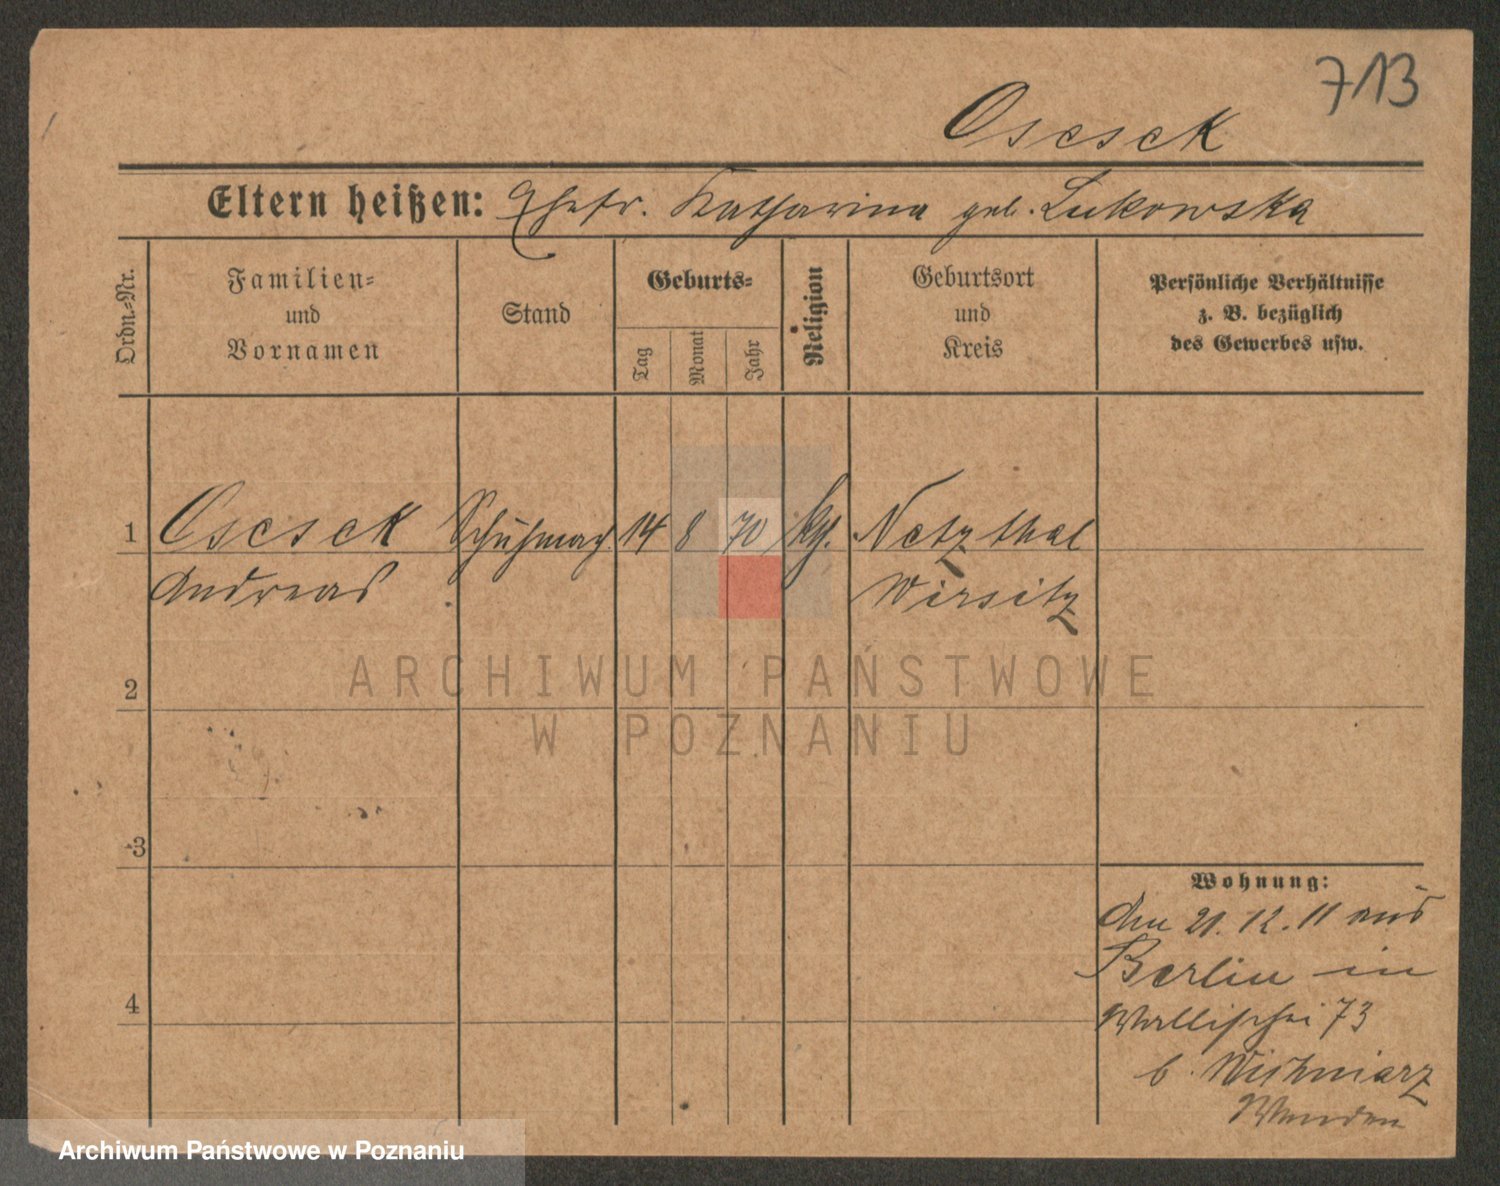 713
Oseseck
Eltern heißen: Ehefr. Katharina geb. Lukowska
Ordn.-Nr.
Familien-
und
Vornamen
Stand
Geburts-
Tag
Monat
Jahr
Religion
Geburtsort
und
Kreis
Persönliche Verhältnisse
z. B. bezüglich
des Gewerbes usw.
1 Osesek Schuhmach. 14 8 70 kth. Netzthal
Andreas Wirsitz
ARCHIWUM PAŃSTWOWE
2
W POZNANIU
3
Wohnung:
Am 21.12.11 aus
Berlin in
4
Wallischei 73
b. Wishniarz
Archiwum Państwowe w Poznaniu